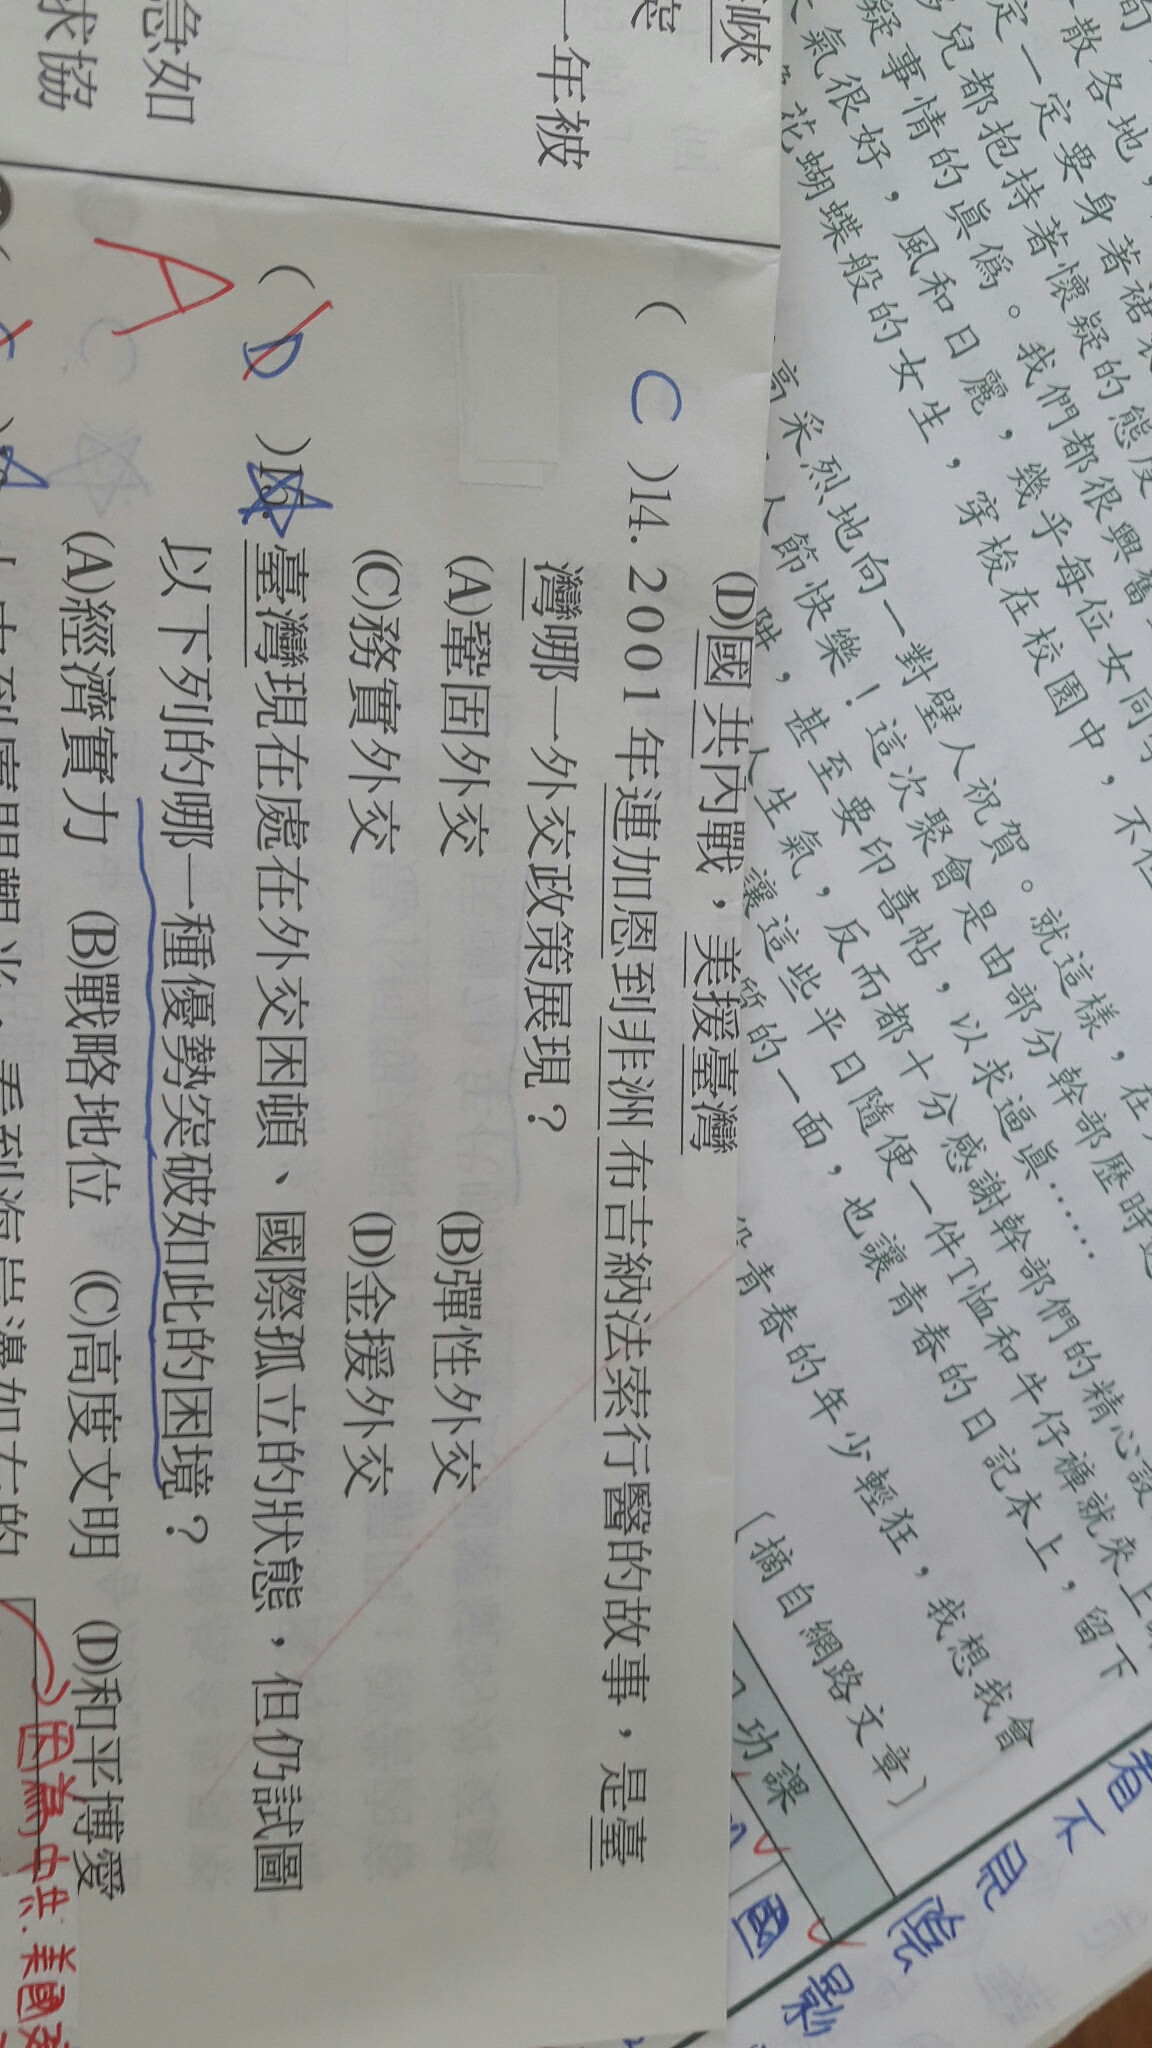 峽
一年被
急如
求協
(D)國共內戰，美援臺灣
( C )14. 2001年連加恩到非洲布吉納法索行醫的故事，是臺
灣哪一外交政策展現？
(A)鞏固外交 (B)彈性外交
(C)務實外交 (D)金援外交
( D )15. 臺灣現在處在外交困頓、國際孤立的狀態，但仍試圖
以下列的哪一種優勢突破如此的困境？
(A)經濟實力 (B)戰略地位 (C)高度文明 (D)和平博愛
A
因為中共.美國
散各地，
定一定要身著裙
兒都抱持著懷疑的態度
疑事情的真偽。我們都很興奮
氣很好，風和日麗，幾乎每位女同學
花蝴蝶般的女生，穿梭在校園中，不但
高采烈地向一對璧人祝賀。就這樣，在
人節快樂！這次聚會是由部分幹部歷時
，甚至要印喜帖，以求逼真……
人生氣，反而都十分感謝幹部們的精心設
讓這些平日隨便一件T恤和牛仔褲就來上
質的一面，也讓青春的日記本上，留下
青春的年少輕狂，我想我會
〔摘自網路文章〕
功課
國
看不見
陰影